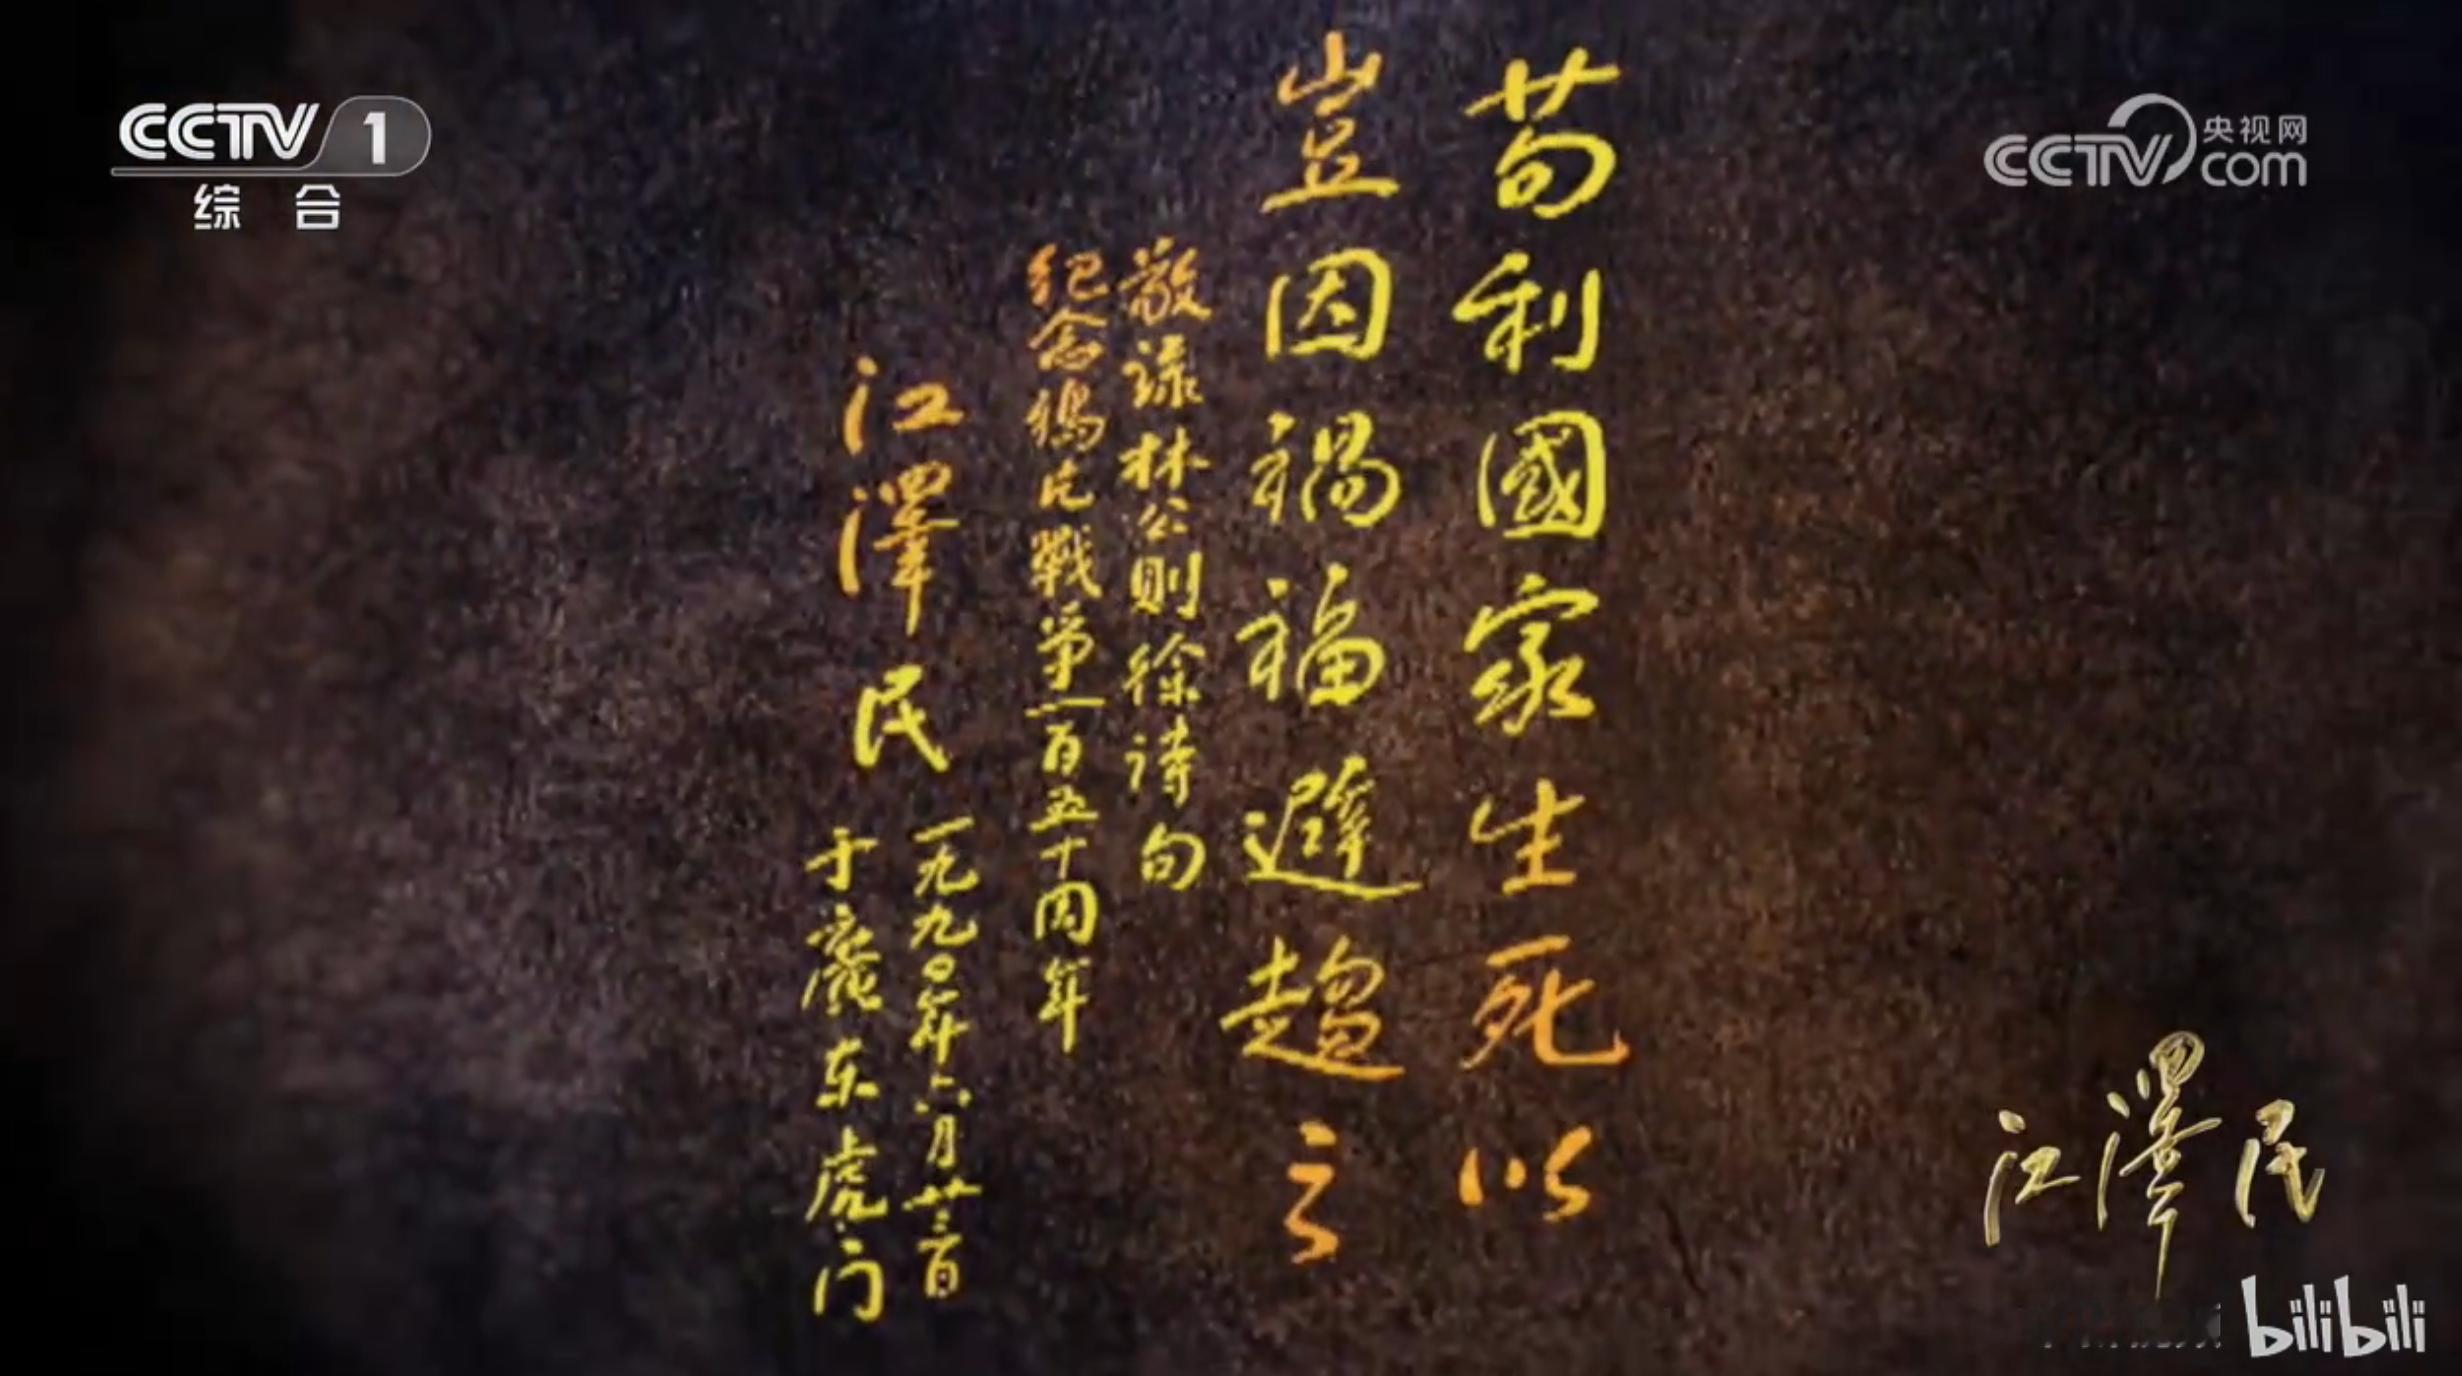 CCTV 1
综合
央视网
CCTV com
苟利國家生死以
豈因禍福避趨之
敬录林公则徐诗句
纪念鴉片戰爭一百五十周年
江澤民
一九九〇年六月廿三日
于廣东虎门
江澤民
bilibili